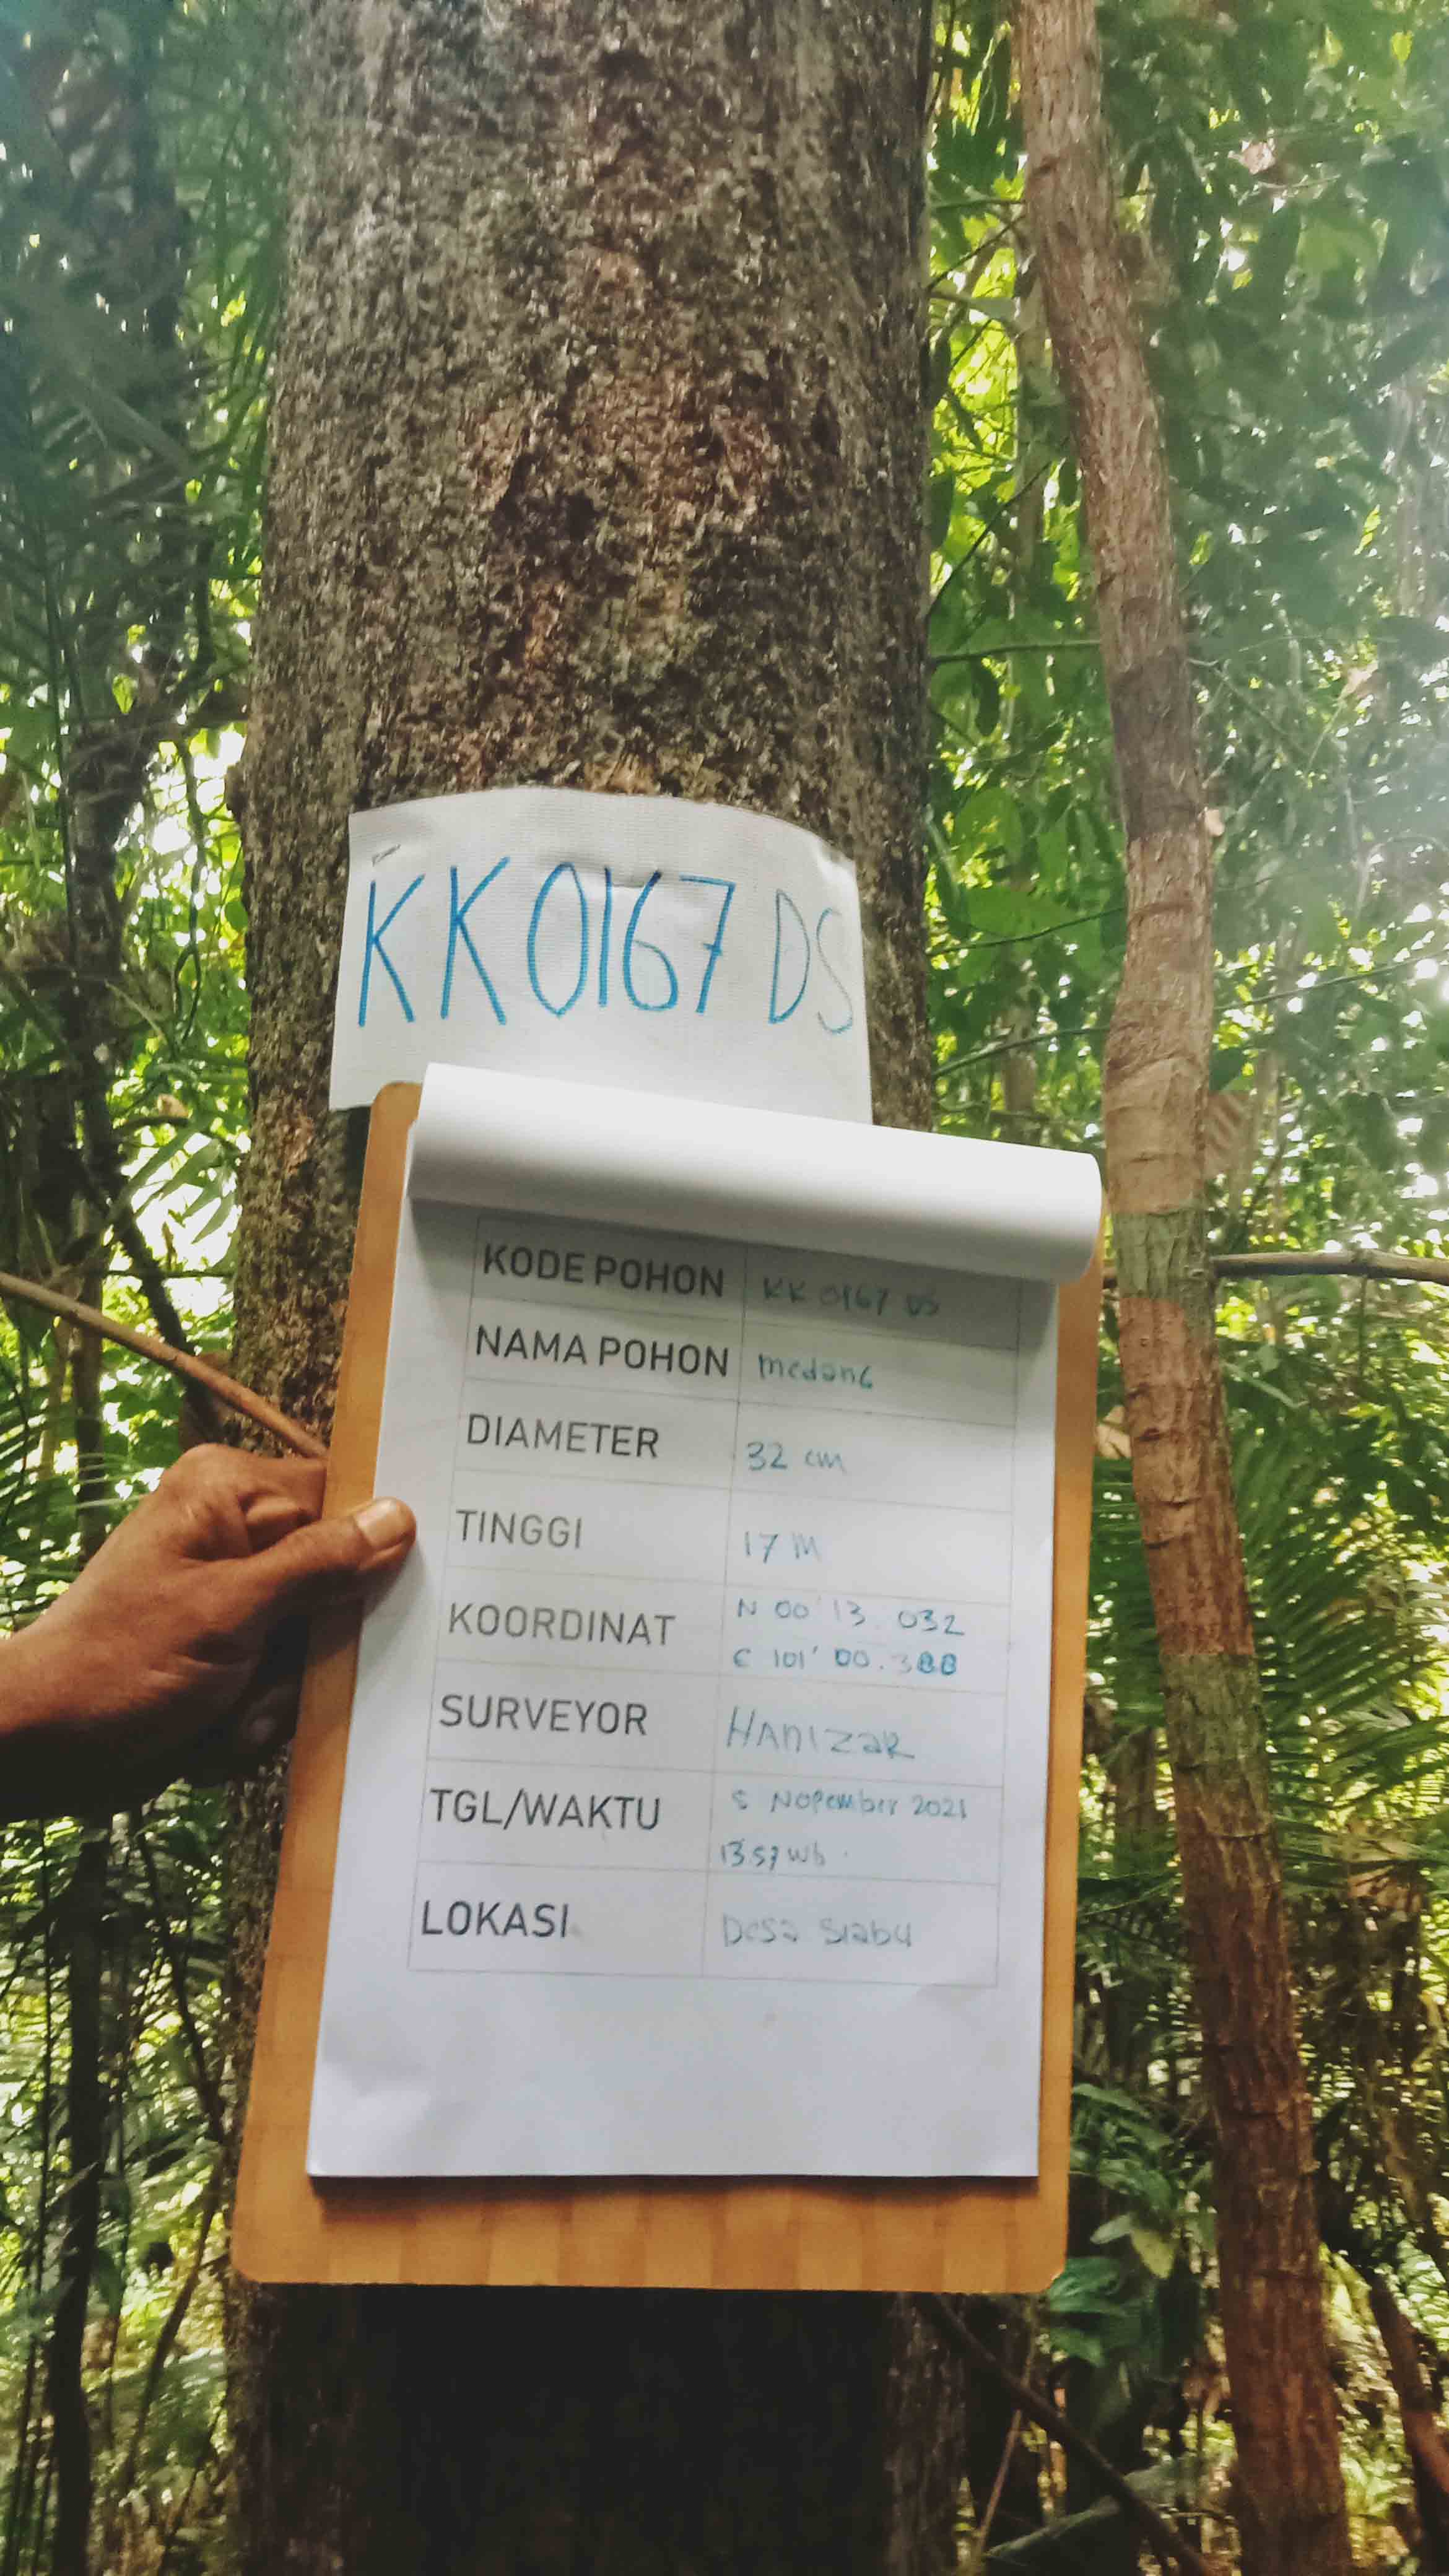 KK0167 DS
KODE POHON KK 0167 DS
NAMA POHON medanG
DIAMETER 32 cm
TINGGI 17 M
KOORDINAT N 00' 13. 032
E 101' 00. 388
SURVEYOR HAnIzaR
TGL/WAKTU 5 Nopember 2021
13.57 Wib
LOKASI Desa Siabu